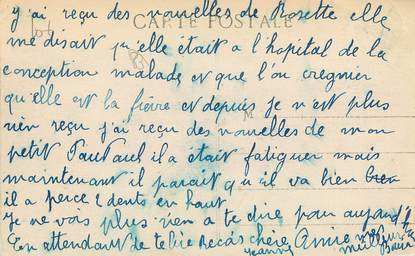 y j'ai reçu des nouvelles de Rosette elle
CARTE POSTALE
me disait qu'elle était a l'hopital de la
conception malade et que l'on cregnier
qu'elle est la fièvre et depuis je n'est plus
rien reçu j'ai reçu des nouvelles de mon
petit Paupaul il a était fatiguer mais
maintenant il parait qu'il va bien
il a percé 2 dents en haut
Je ne vois plus rien a te dire pour aujourd'h
En attendant de te lire chère Amie mes
meilleurs